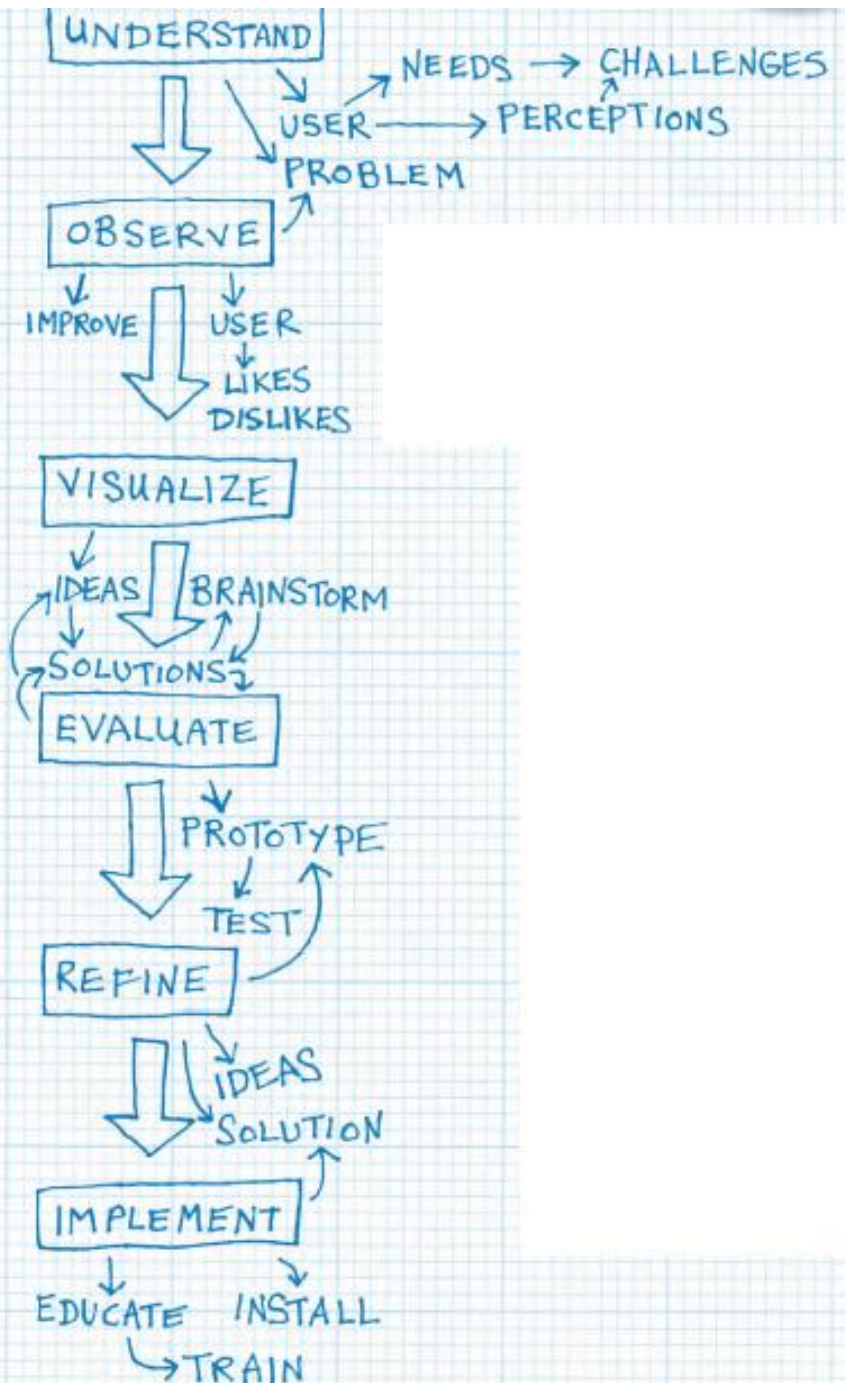 UNDERSTAND
NEEDS → CHALLENGES
USER → PERCEPTIONS
PROBLEM
OBSERVE
IMPROVE
USER
LIKES
DISLIKES
VISUALIZE
IDEAS
BRAINSTORM
SOLUTIONS
EVALUATE
PROTOTYPE
TEST
REFINE
IDEAS
SOLUTION
IMPLEMENT
EDUCATE
INSTALL
TRAIN